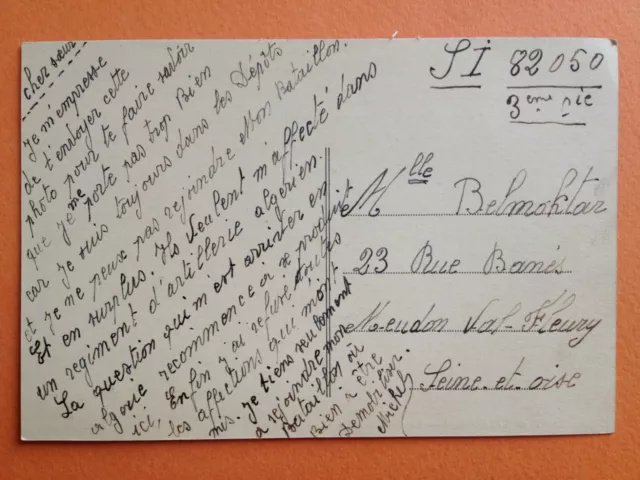 cher sœur
Je m'empresse
de t'envoyer cette
photo pour te faire savoir
que je me porte pas trop Bien
car je suis toujours dans les Dépôts
et je ne peux pas rejoindre Mon Bataillon.
Et en surplus. Ils veulent m'affecté dans
un regiment d'artillerie algerien.
La question qui m est arriver en
algerie recommence a se produit
ici, Enfin j'ai refusé toutes
les affections qui m'ont
mis. je tiens seulement
a rejoindre mon
Bataillon ou
Bien a être
Demobiliser.
Michel
SI 82050
3eme Cie
Mlle Belmoktar
23 Rue Banés
Meudon Val-Fleury
Seine-et-oise